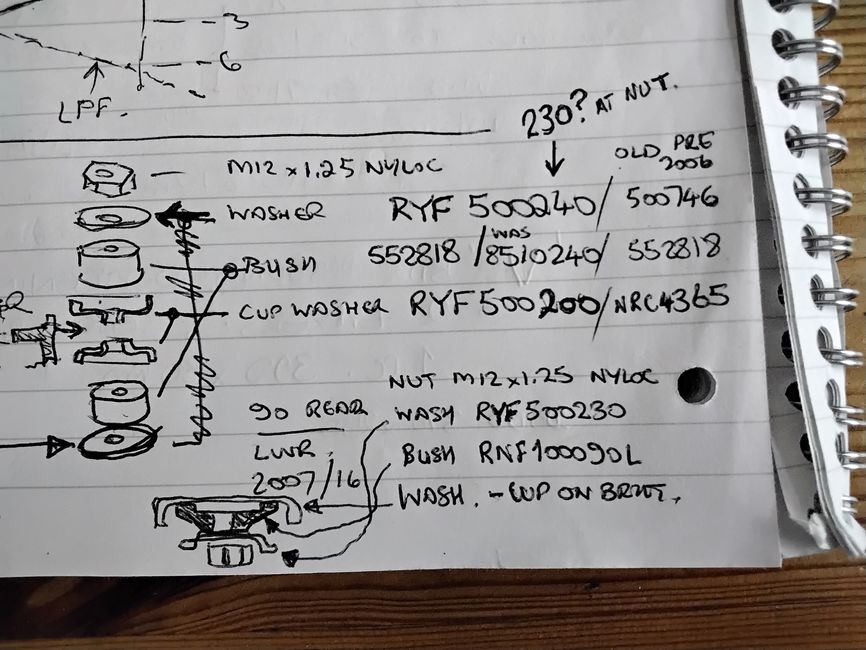 3
6
LPF.
230? AT NUT.
OLD PRE 2006
M12 x 1.25 NYLOC
WASHER RYF 500240 / 500746
BUSH 552818 / WAS 8510240 / 552818
CUP WASHER RYF500200 / NRC4365
NUT M12x1.25 NYLOC
90 REAR WASH RYF500230
LWR. BUSH RNF100090L
2007/16 WASH. - CUP ON BRKT.